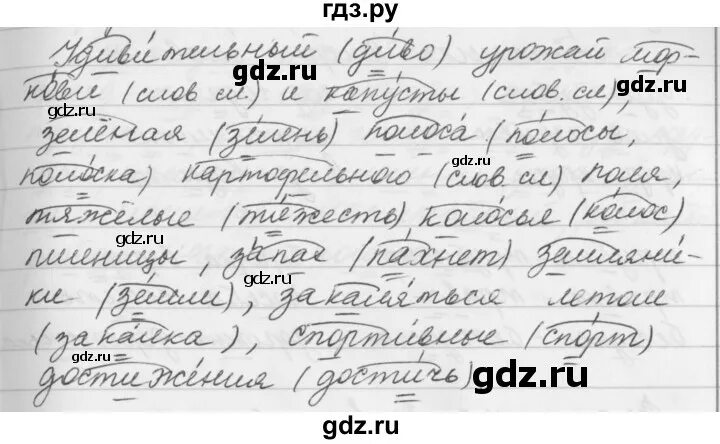 гдз.ру
Удивительный (диво) урожай мор-
gdz.ru
gdz.ru
кови (слов сл.) и капусты (слов. сл),
зелёная (зелень) полоса (полосы,
gdz.ru
gdz.ru
полоска) картофельного (слов. сл) поля,
тяжёлые (тяжесть) колосья (колос)
gdz.ru
пшеницы, запах (пахнет) земляни-
gdz.ru
ки (земли), закаляться летом
gdz.ru
(закалка), спортивные (спорт)
достижения (достичь)
gdz.ru
gdz.ru